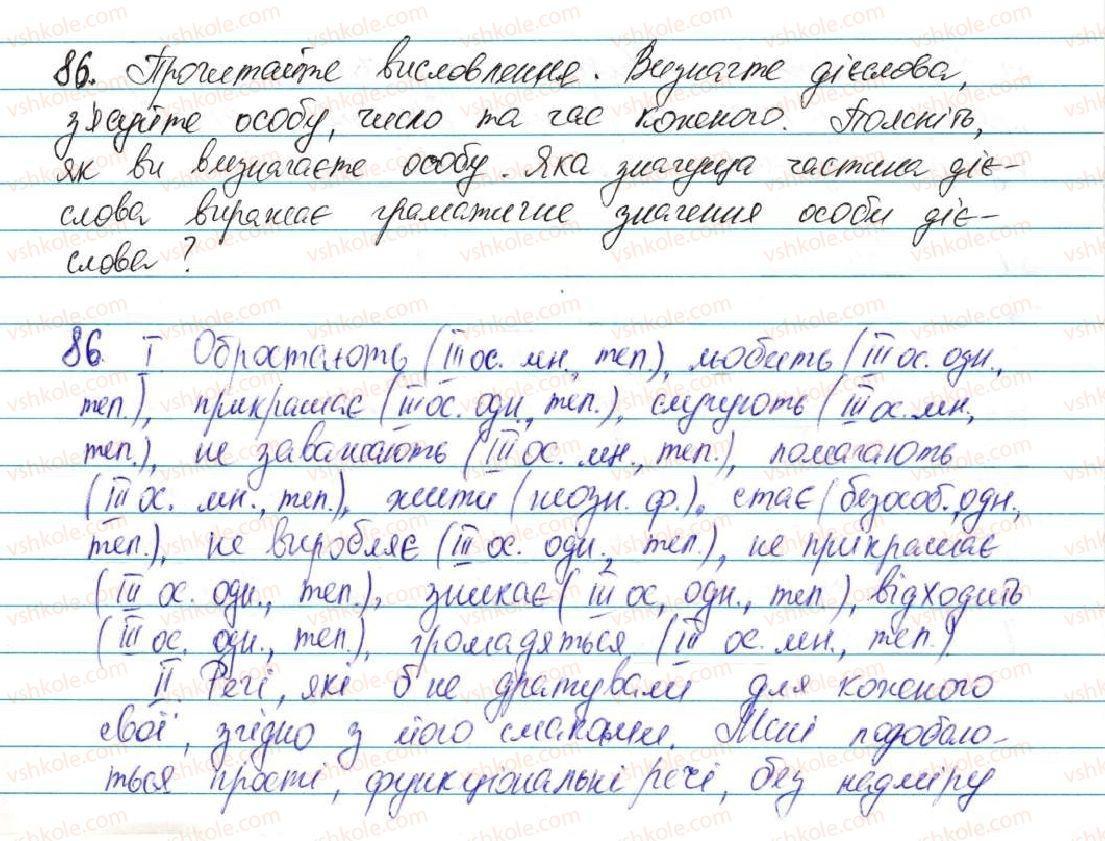 86. Прочитайте висловлення. Визначте дієслова,
з'ясуйте особу, число та час кожного. Поясніть,
як ви визначаєте особу. Яка значуща частина діє-
слова виражає граматичне значення особи діє-
слова?
86. І Обростають (ІІІ ос. мн., теп.), любить (ІІІ ос. одн.,
теп.), прикрашає (ІІІ ос. одн., теп.), слугують (ІІІ ос. мн.,
теп.), не заважають (ІІІ ос. мн., теп.), помагають
(ІІІ ос. мн., теп.), жити (неозн. ф.), стає (безособ., одн.,
теп.), не виробляє (ІІІ ос. одн., теп.), не прикрашає
(ІІІ ос. одн., теп.), зникає (ІІІ ос, одн., теп.), відходить
(ІІІ ос. одн., теп.), громадяться (ІІІ ос. мн., теп.)
ІІ. Речі, які б не дратували для кожного
свої, згідно з його смаками. Мені подобаю-
ться прості, функціональні речі, без надміру